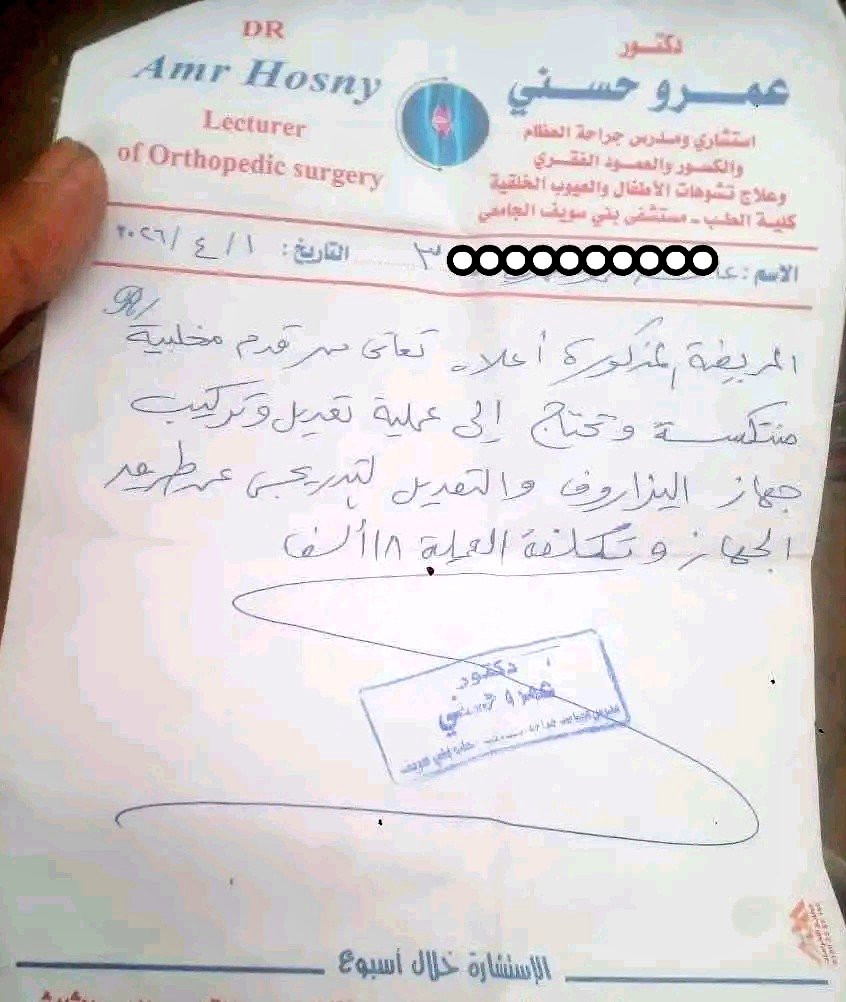 DR
Amr Hosny
Lecturer
of Orthopedic surgery
دكتـور
عمـرو حسـني
استشاري ومدرس جراحة العظام
والكسور والعمود الفقري
وعلاج تشوهات الأطفال والعيوب الخلقية
كلية الطب - مستشفى بني سويف الجامعي
الاسم :
التاريخ : ١ / ٤ / ٢٠٢٦
R/
المريضة المذكورة أعلاه تعانى من قدم مخلبية
منتكسة وتحتاج إلى عملية تعديل وتركيب
جهاز اليزاروف والتعديل التدريجى عن طريق
الجهاز وتكلفة العملية ١٨ ألف
دكتور
عمرو حسني
الإستشارة خلال أسبوع